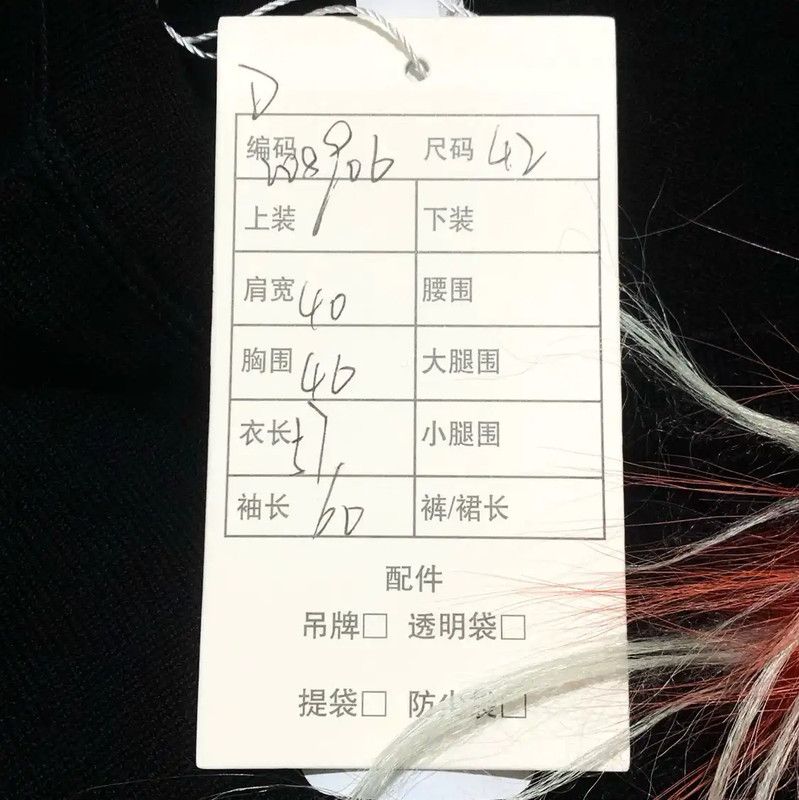 D
编码 208906 尺码 42
上装 下装
肩宽 40 腰围
胸围 46 大腿围
衣长 57 小腿围
袖长 60 裤/裙长
配件
吊牌□ 透明袋□
提袋□ 防尘袋□